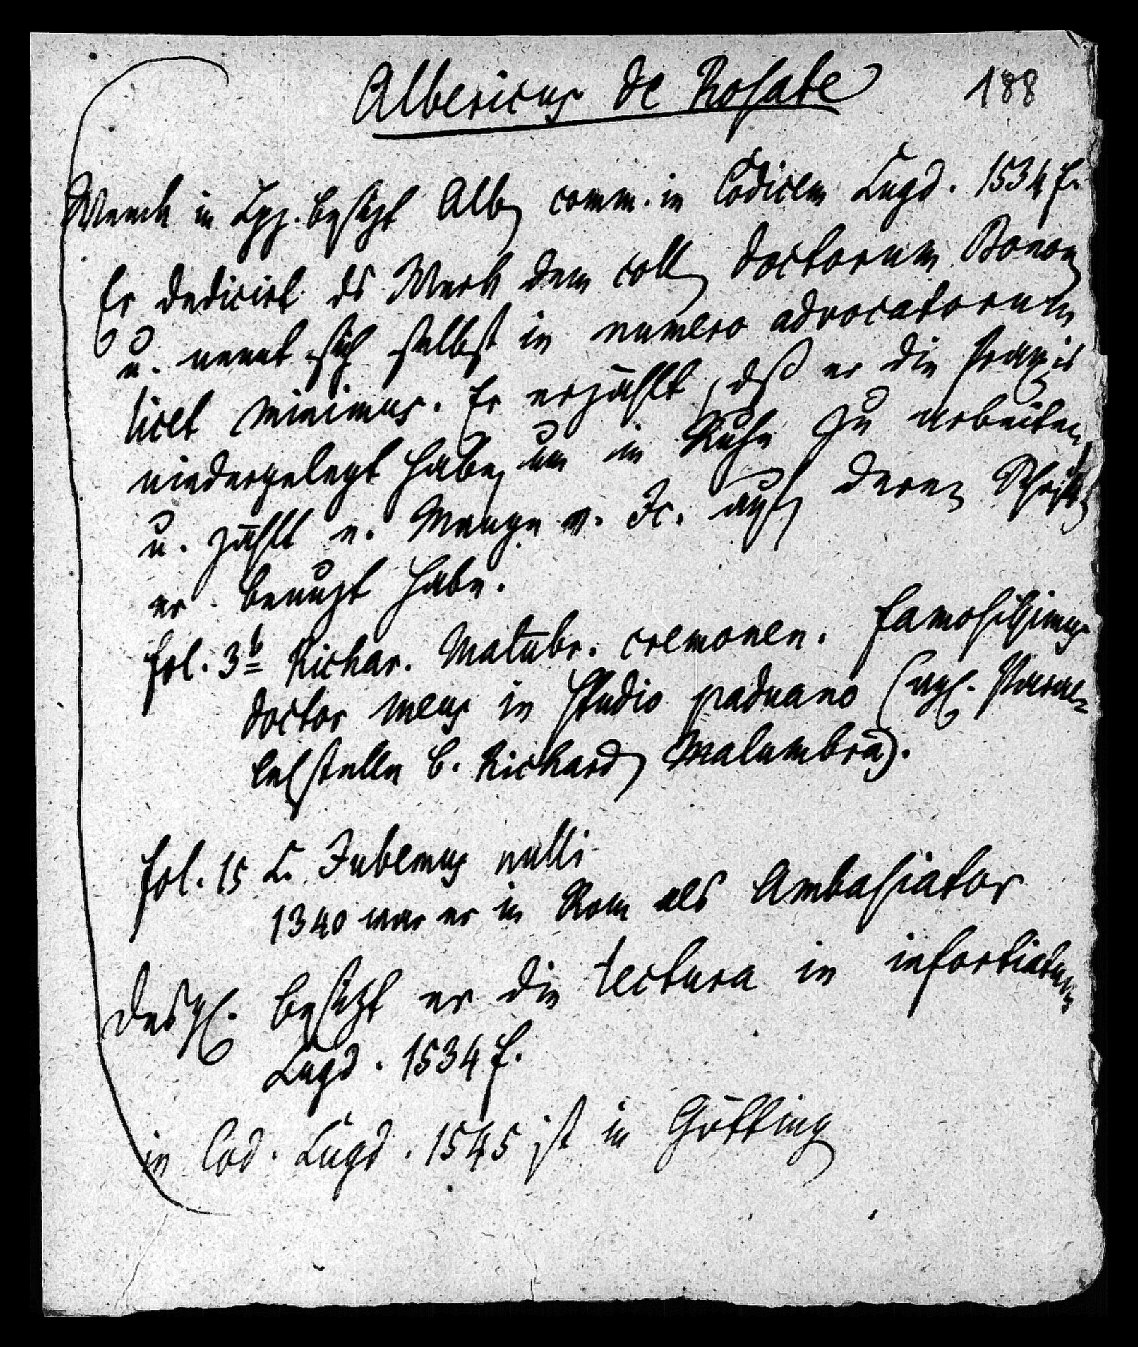 Albericus de Rosate 188
Wenck in Lpz. besitzt Alb comm. in Codicem Lugd. 1534 f.
Er dedicirt ds Werk dem coll doctorum Bonon
u. nennt sich selbst in numero advocatorum
licet minimus. Er erzählt, dß er die Praxis
niedergelegt habe, um in Ruhe zu arbeiten,
u. zählt e. Menge v. Jc. auf deren Schrift
er benuzt habe.
fol. 3b Richar. Malubr. cremonen. famosissimus
doctor meus in studio paduano (vgl. Paral-
lelstelle b. Richard Malumbra).
fol. 15 L. Jubemus nulli
1340 war er in Rom als Ambasiator
Desgl. besitzt er die lectura in infortiatum
Lugd. 1534 f.
in Cod. Lugd. 1545 ist in Götting